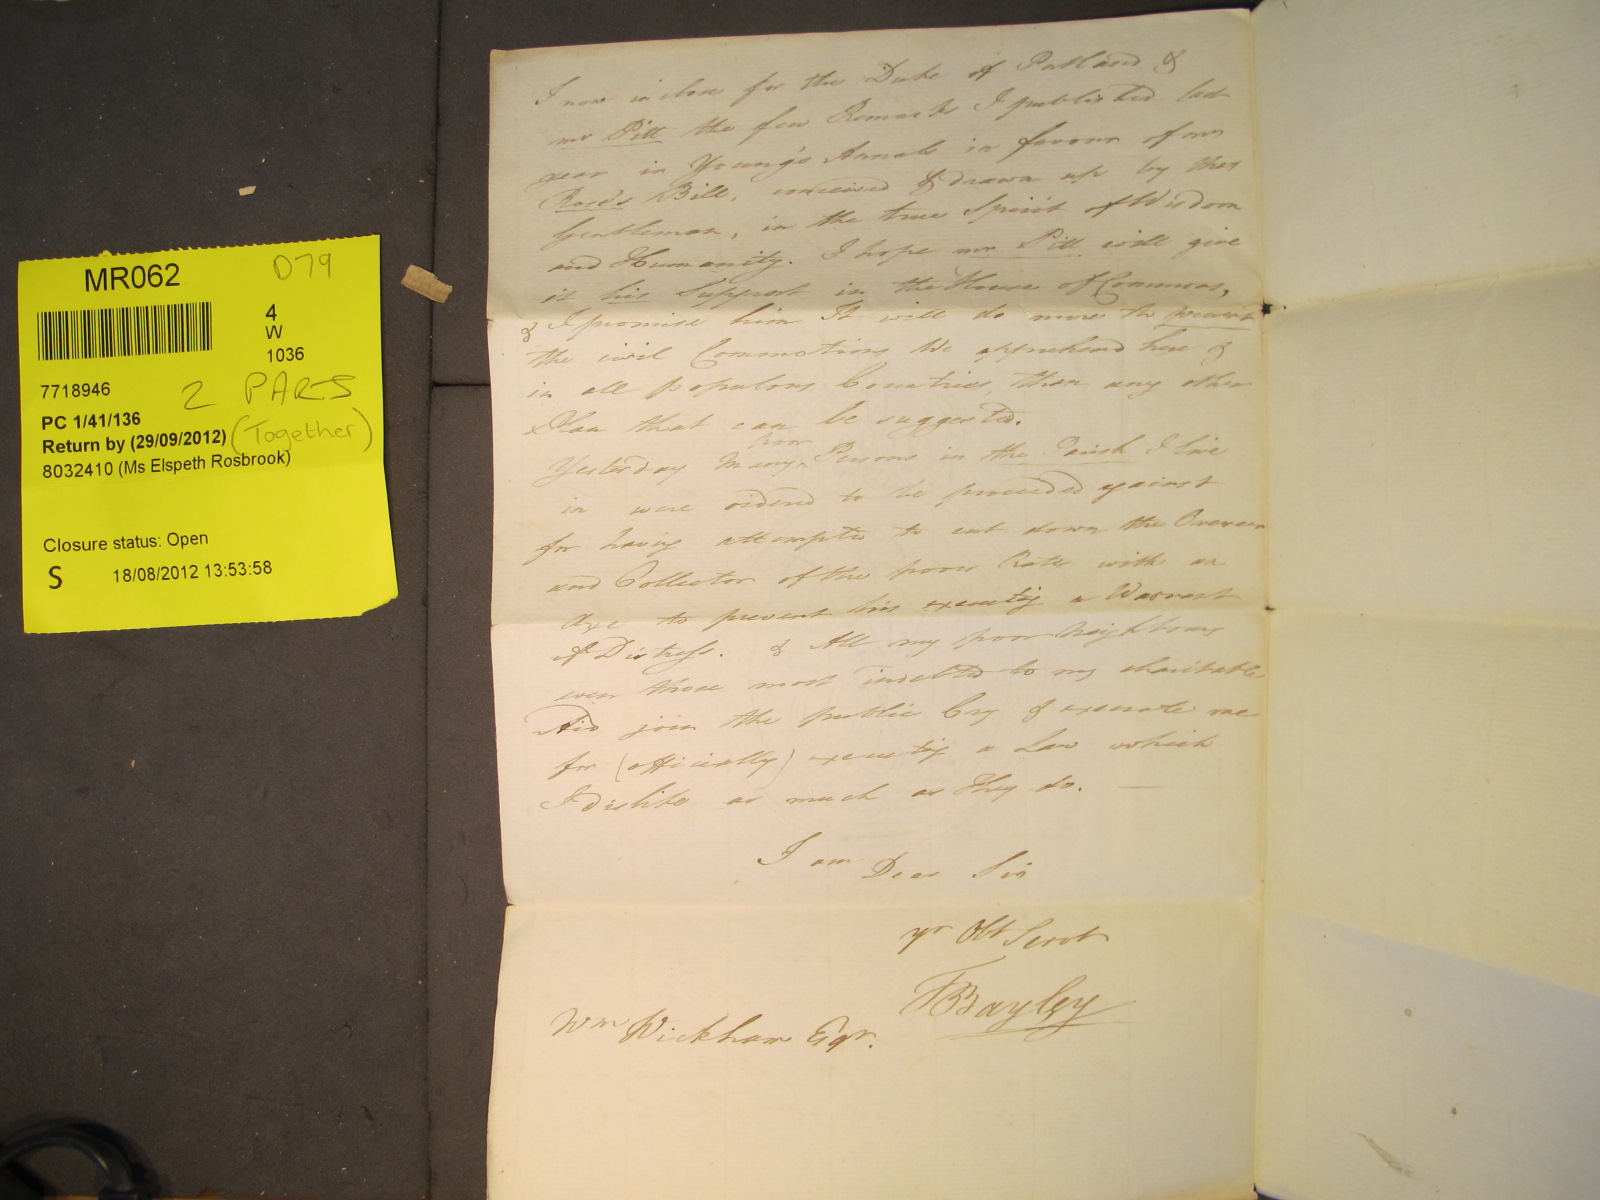 MR062
D79
4
W
1036
7718946
2 PARTS
PC 1/41/136
Return by (29/09/2012) (Together)
8032410 (Ms Elspeth Rosbrook)
Closure status: Open
S 18/08/2012 13:53:58
I now inclose for the Duke of Portland &
mr Pitt the few Remarks I published last
year in Young's Annals in favour of mr
Rose's Bill, conceived & drawn up by that
Gentleman, in the true Spirit of Wisdom
and Humanity. I hope mr Pitt will give
it his Support in the House of Commons,
& I promise him It will do more to prevent
the civil Commotions We apprehend here &
in all populous Countries, than any other
Plan that can be suggested.
Yesterday Many poor Persons in the Parish I live
in were ordered to be proceeded against
for having attempted to cut down the Overseer
and Collector of the poor Rates with an
Axe to prevent his executig a Warrant
of Distress. & All my poor neighbours
even those most indebted to my charitable
Aid join the public Cry & execrate me
for (officially) executig a Law which
I dislike as much as they do. —
I am Dear Sir
yr Obt Servt
TBBayley
Wm Wickham Esqr.